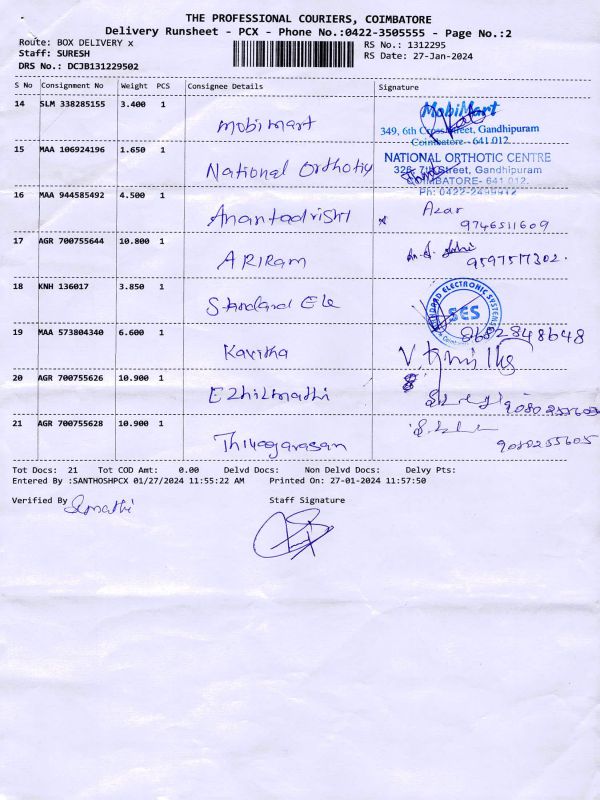 THE PROFESSIONAL COURIERS, COIMBATORE
Delivery Runsheet - PCX - Phone No.:0422-3505555 - Page No.:2
Route: BOX DELIVERY x
RS No.: 1312295
Staff: SURESH
RS Date: 27-Jan-2024
DRS No.: DCJB131229502
S No Consignment No Weight PCS Consignee Details Signature
14 SLM 338285155 3.400 1
Mobimart
MobiMart
349, 6th Cross Street, Gandhipuram
Coimbatore - 641 012.
15 MAA 106924196 1.650 1
National Orthotiy
NATIONAL ORTHOTIC CENTRE
326, 7th Street, Gandhipuram
COIMBATORE- 641 012.
Ph: 0422-2499912
16 MAA 944585492 4.500 1
Anantadrishti
Azar
9746511609
17 AGR 700755644 10.800 1
ARIRAM
9597577302.
18 KNH 136017 3.850 1
Standard Ele
STANDARD ELECTRONIC SYSTEMS
SES
8682848648
19 MAA 573804340 6.600 1
Kavitha
20 AGR 700755626 10.900 1
Ezhilmathi
21 AGR 700755628 10.900 1
Thiyagarasan
9080255605
Tot Docs: 21 Tot COD Amt: 0.00 Delvd Docs: Non Delvd Docs: Delvy Pts:
Entered By :SANTHOSHPCX 01/27/2024 11:55:22 AM Printed On: 27-01-2024 11:57:50
Verified By
Staff Signature